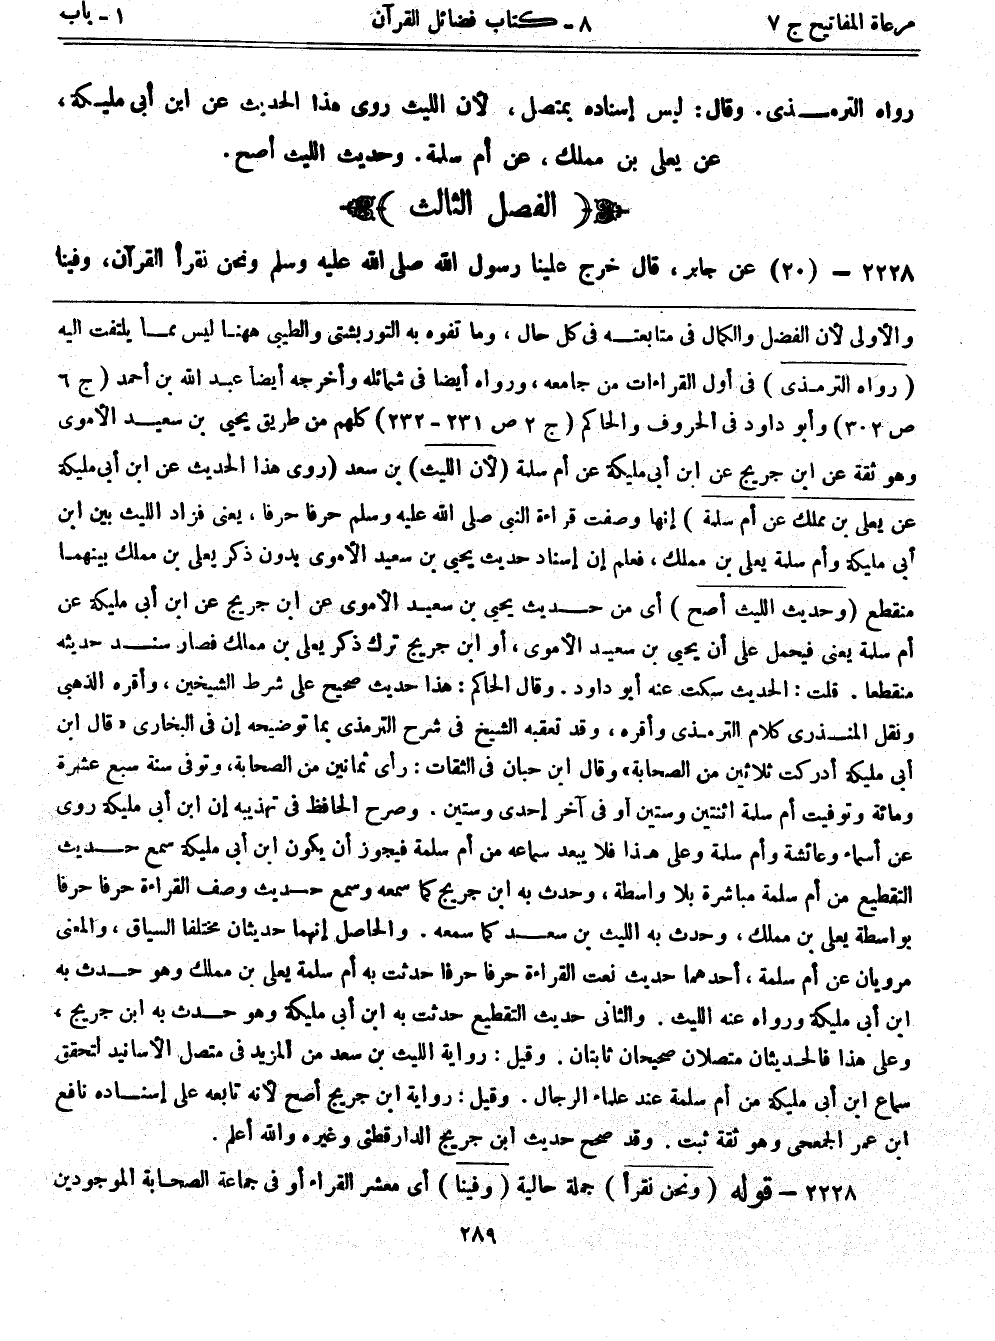 مرعاة المفاتيح ج ٧ ٨ - كتاب فضائل القرآن ١ - باب
رواه الترمذى. وقال: ليس إسناده بمتصل، لأن الليث روى هذا الحديث عن ابن أبى مليكة،
عن يعلى بن مملك، عن أم سلمة. وحديث الليث أصح.
( الفصل الثالث )
٢٢٢٨ – (٢٠) عن جابر، قال خرج علينا رسول الله صلى الله عليه وسلم ونحن نقرأ القرآن، وفينا
والأولى لأن الفضل والكمال فى متابعته فى كل حال، وما تفوه به التوربشتى والطيبى ههنا ليس مما يلتفت اليه
( رواه الترمذى ) فى أول القراءات من جامعه، ورواه أيضا فى شمائله وأخرجه أيضا عبد الله بن أحمد ( ج ٦
ص ٣٠٢) وأبو داود فى الحروف والحاكم ( ج ٢ ص ٢٣١ - ٢٣٢) كلهم من طريق يحيى بن سعيد الأموى
وهو ثقة عن ابن جريج عن ابن أبى مليكة عن أم سلمة (لأن الليث) بن سعد (روى هذا الحديث عن ابن أبى مليكة
عن يعلى بن مملك عن أم سلمة ) إنها وصفت قراءة النبى صلى الله عليه وسلم حرفا حرفا، يعنى فزاد الليث بين ابن
أبى مليكة وأم سلمة يعلى بن مملك، فعلم إن إسناد حديث يحيى بن سعيد الأموى بدون ذكر يعلى بن مملك بينهما
منقطع (وحديث الليث أصح ) أى من حديث يحيى بن سعيد الأموى عن ابن جريج عن ابن أبى مليكة عن
أم سلمة يعنى فيحمل على أن يحيى بن سعيد الأموى، أو ابن جريج ترك ذكر يعلى بن مملك فصار سند حديثه
منقطعا. قلت: الحديث سكت عنه أبو داود. وقال الحاكم: هذا حديث صحيح على شرط الشيخين، وأقره الذهبى
ونقل المنذرى كلام الترمذى وأقره، وقد تعقبه الشيخ فى شرح الترمذى بما توضيحه إن فى البخارى «قال ابن
أبى مليكة أدركت ثلاثين من الصحابة» وقال ابن حبان فى الثقات: رأى ثمانين من الصحابة، وتوفى سنة سبع عشرة
ومائة وتوفيت أم سلمة اثنتين وستين أو فى آخر إحدى وستين. وصرح الحافظ فى تهذيبه إن ابن أبى مليكة روى
عن أسماء وعائشة وأم سلمة وعلى هذا فلا يبعد سماعه من أم سلمة فيجوز أن يكون ابن أبى مليكة سمع حديث
التقطيع من أم سلمة مباشرة بلا واسطة، وحدث به ابن جريج كما سمعه وسمع حديث وصف القراءة حرفا حرفا
بواسطة يعلى بن مملك، وحدث به الليث بن سعد كما سمعه. والحاصل إنهما حديثان مختلفا السياق، والمعنى
مرويان عن أم سلمة، أحدهما حديث نعت القراءة حرفا حرفا حدثت به أم سلمة يعلى بن مملك وهو حدث به
ابن أبى مليكة ورواه عنه الليث. والثانى حديث التقطيع حدثت به ابن أبى مليكة وهو حدث به ابن جريج،
وعلى هذا فالحديثان متصلان صحيحان ثابتان. وقيل: رواية الليث بن سعد من المزيد فى متصل الأسانيد لتحقق
سماع ابن أبى مليكة من أم سلمة عند علماء الرجال. وقيل: رواية ابن جريج أصح لأنه تابعه على إسناده نافع
ابن عمر الجمحى وهو ثقة ثبت. وقد صحح حديث ابن جريج الدارقطنى وغيره والله أعلم.
٢٢٢٨ – قوله ( ونحن نقرأ ) جملة حالية ( وفينا ) أى معشر القراء أو فى جماعة الصحابة الموجودين
٢٨٩